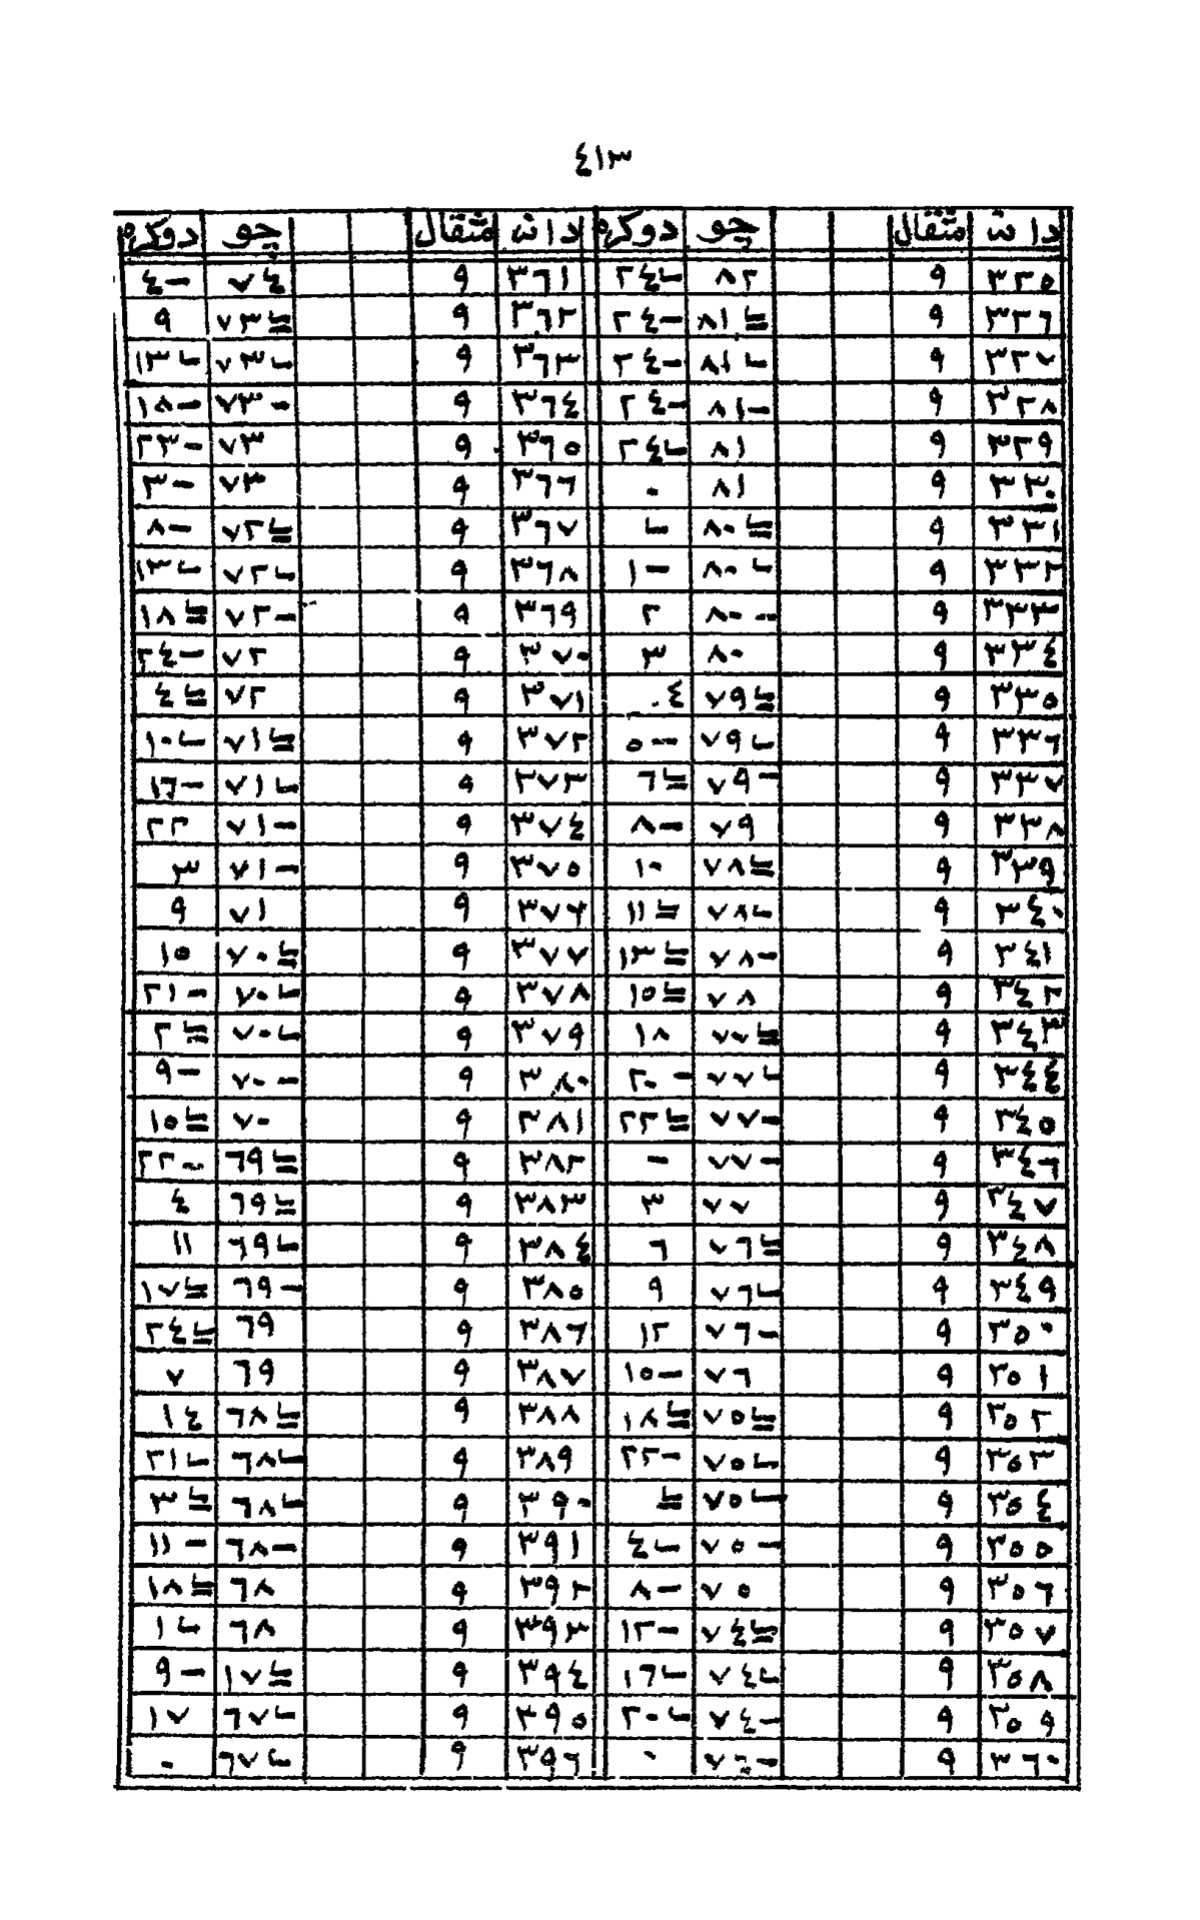 ٤١٣
دانه مثقال چو دوكره دانه مثقال چو دوكره
٣٢٥ ٩ ٨٢ ٢٤ٮ ٣٦١ ٩ ٧٤ ٤-
٣٢٦ ٩ ٨١ٮ= ٢٤- ٣٦٢ ٩ ٧٣ٮ= ٩
٣٢٧ ٩ ٨١ٮ ٢٤- ٣٦٣ ٩ ٧٣ٮ ١٣ٮ
٣٢٨ ٩ ٨١- ٢٤- ٣٦٤ ٩ ٧٣- ١٨-
٣٢٩ ٩ ٨١ ٢٤ٮ ٣٦٥ ٩ ٧٣ ٢٣-
٣٣٠ ٩ ٨١ ٠ ٣٦٦ ٩ ٧٣ ٣-
٣٣١ ٩ ٨٠ٮ= ٮ ٣٦٧ ٩ ٧٢ٮ= ٨-
٣٣٢ ٩ ٨٠ٮ ١- ٣٦٨ ٩ ٧٢ٮ ١٣ٮ
٣٣٣ ٩ ٨٠- ٢ ٣٦٩ ٩ ٧٢- ١٨ٮ=
٣٣٤ ٩ ٨٠ ٣ ٣٧٠ ٩ ٧٢ ٢٤-
٣٣٥ ٩ ٧٩ٮ= ٤ ٣٧١ ٩ ٧٢ ٤ٮ=
٣٣٦ ٩ ٧٩ٮ ٥- ٣٧٢ ٩ ٧١ٮ= ١٠ٮ
٣٣٧ ٩ ٧٩- ٦ٮ= ٣٧٣ ٩ ٧١ٮ ١٦-
٣٣٨ ٩ ٧٩ ٨- ٣٧٤ ٩ ٧١- ٢٢
٣٣٩ ٩ ٧٨ٮ= ١٠ ٣٧٥ ٩ ٧١- ٣
٣٤٠ ٩ ٧٨ٮ ١١ٮ= ٣٧٦ ٩ ٧١ ٩
٣٤١ ٩ ٧٨- ١٣ٮ= ٣٧٧ ٩ ٧٠ٮ= ١٥
٣٤٢ ٩ ٧٨ ١٥ٮ= ٣٧٨ ٩ ٧٠ٮ ٢١-
٣٤٣ ٩ ٧٧ٮ= ١٨ ٣٧٩ ٩ ٧٠ٮ ٢ٮ=
٣٤٤ ٩ ٧٧ٮ ٢٠- ٣٨٠ ٩ ٧٠- ٩-
٣٤٥ ٩ ٧٧- ٢٢ٮ= ٣٨١ ٩ ٧٠ ١٥ٮ=
٣٤٦ ٩ ٧٧- - ٣٨٢ ٩ ٦٩ٮ= ٢٢-
٣٤٧ ٩ ٧٧ ٣ ٣٨٣ ٩ ٦٩ٮ= ٤
٣٤٨ ٩ ٧٦ٮ= ٦ ٣٨٤ ٩ ٦٩ٮ ١١
٣٤٩ ٩ ٧٦ٮ ٩ ٣٨٥ ٩ ٦٩- ١٧ٮ=
٣٥٠ ٩ ٧٦- ١٢ ٣٨٦ ٩ ٦٩ ٢٤ٮ=
٣٥١ ٩ ٧٦ ١٥- ٣٨٧ ٩ ٦٩ ٧
٣٥٢ ٩ ٧٥ٮ= ١٨ٮ= ٣٨٨ ٩ ٦٨ٮ= ١٤
٣٥٣ ٩ ٧٥ٮ ٢٢- ٣٨٩ ٩ ٦٨ٮ ٢١ٮ
٣٥٤ ٩ ٧٥ٮ ٮ= ٣٩٠ ٩ ٦٨ٮ ٣ٮ=
٣٥٥ ٩ ٧٥- ٤ٮ ٣٩١ ٩ ٦٨- ١١-
٣٥٦ ٩ ٧٥ ٨- ٣٩٢ ٩ ٦٨ ١٨ٮ=
٣٥٧ ٩ ٧٤ٮ= ١٢- ٣٩٣ ٩ ٦٨ ١ٮ
٣٥٨ ٩ ٧٤ٮ ١٦ٮ ٣٩٤ ٩ ١٧ٮ= ٩-
٣٥٩ ٩ ٨٤- ٢٠ٮ ٣٩٥ ٩ ٦٧ٮ ١٧
٣٦٠ ٩ ٠ ٣٩٦ ٩ ٦٧ٮ ٠